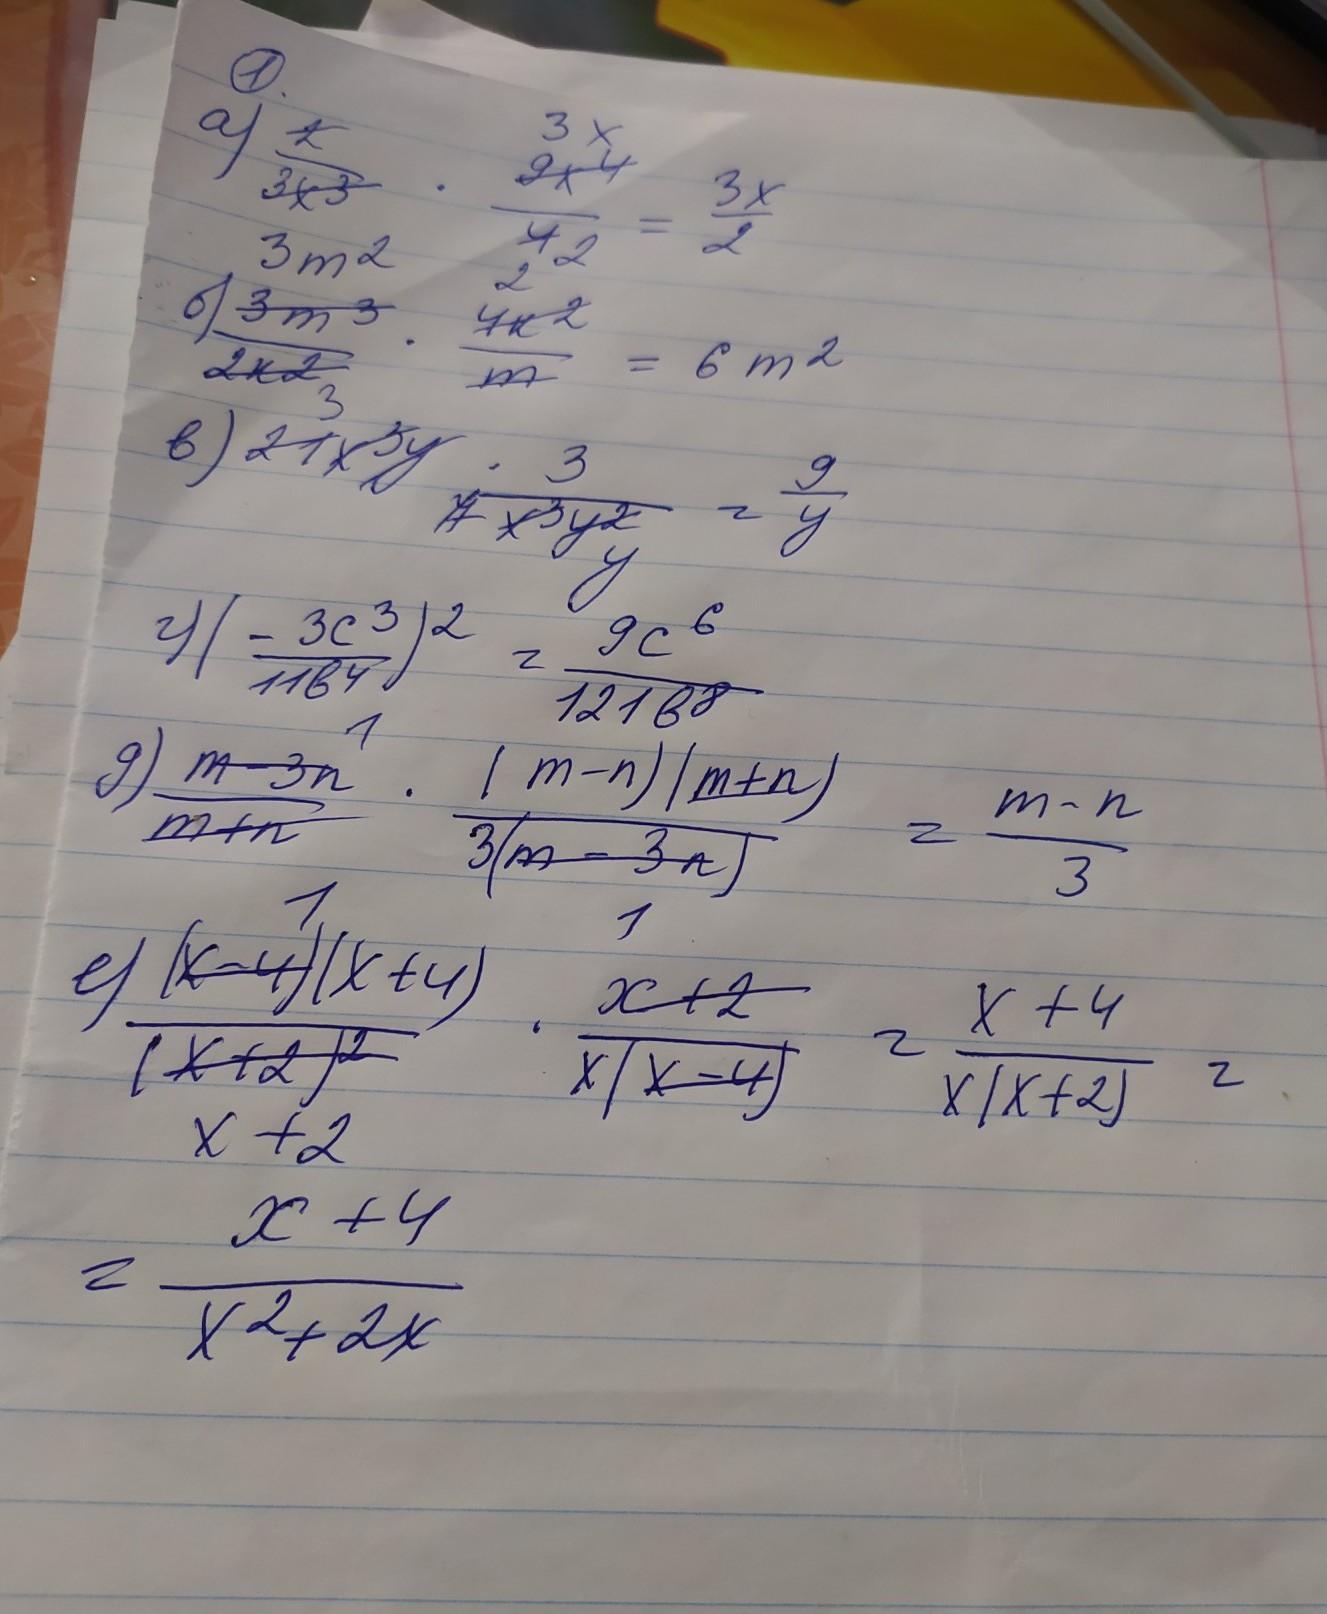 1.
а) 2/3x³ · 9x⁴/4 = 3x/2
3x
2
3m²
2
б) 3m³/2x² · 4x²/m = 6m²
3
в) 21x³y · 3/7x³y² = 9/y
y
г) (-3c³/11b⁴)² = 9c⁶/121b⁸
1
д) m-3n/m+n · (m-n)(m+n)/3(m-3n) = m-n/3
1
1
е) (x-4)(x+4)/(x+2)² · x+2/x(x-4) = x+4/x(x+2) =
x+2
= x+4/x²+2x